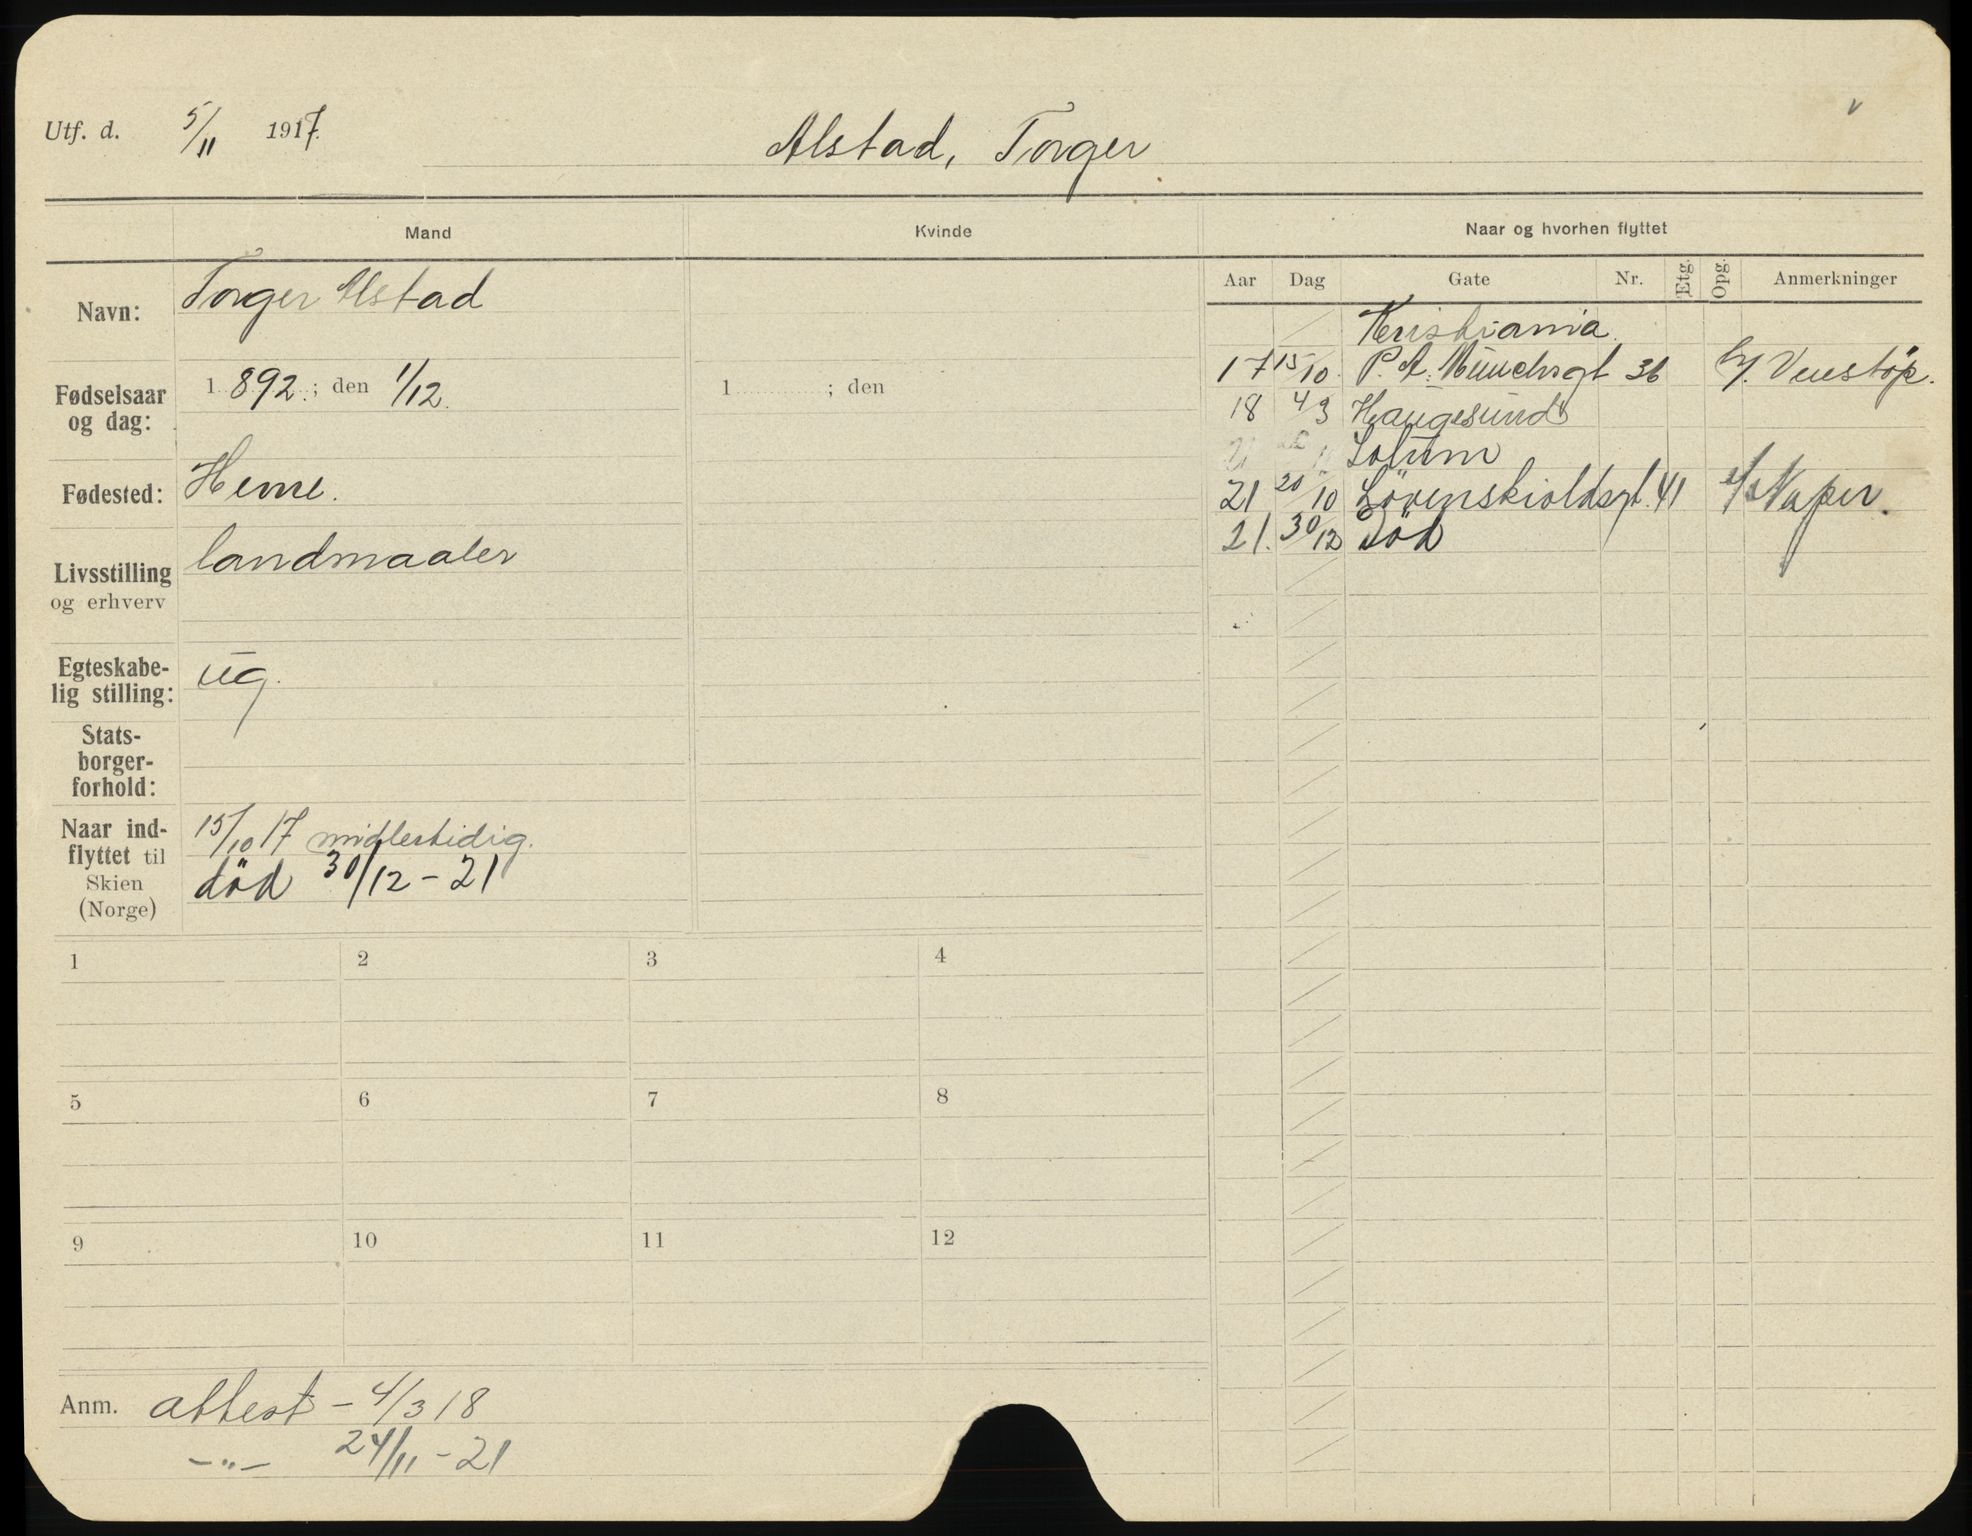 Utf. d. 5/11 1917.
Alstad, Torger
Mand
Kvinde
Naar og hvorhen flyttet
Navn: Torger Alstad
Fødselsaar og dag: 1892; den 1/12.
1 ; den
Fødested: Hemne.
Livsstilling og erhverv landmaaler
Egteskabe-
lig stilling: ug.
Stats-
borger-
forhold:
Naar ind-
flyttet til
Skien
(Norge)
15/10 17 midlertidig.
död 30/12 - 21
Aar Dag Gate Nr. Etg. Opg. Anmerkninger
Kristiania.
17 15/10 P. A. Munchsgt 36 Venstöp.
18 4/3 Haugesund
Solum
21 20/10 Lövenskioldsgt. 41 Naper.
21. 30/12 Död
1 2 3 4
5 6 7 8
9 10 11 12
Anm. attest - 4/3 18
-"- 24/11 - 21